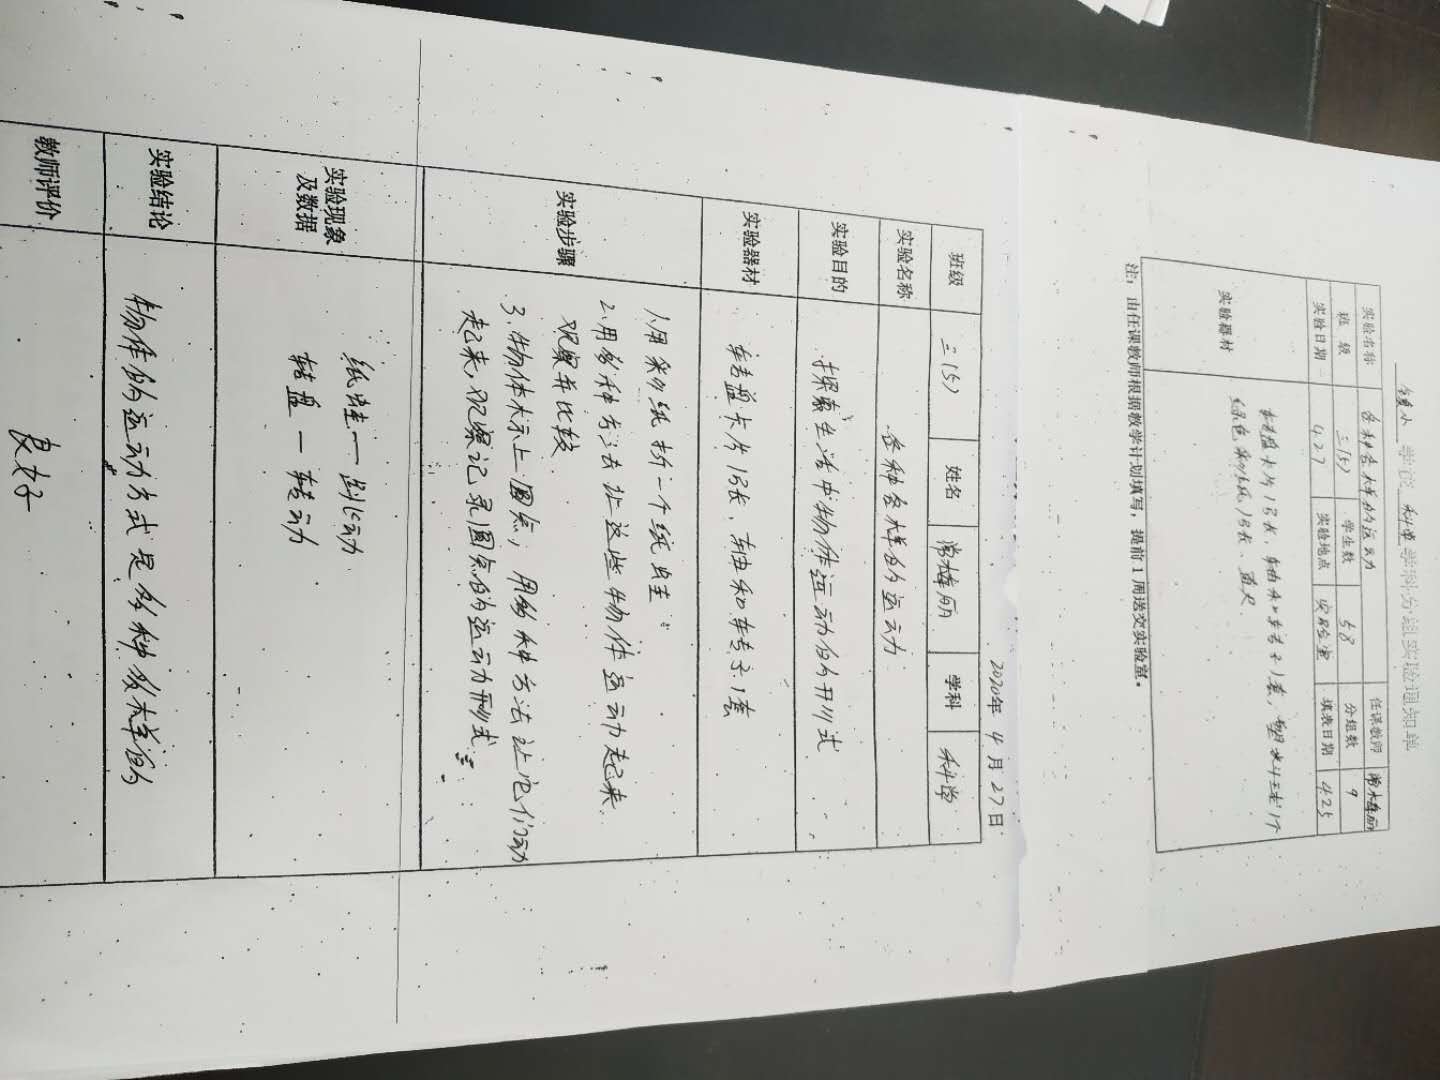 学校 科学 学科分组实验通知单
实验名称 各种各样的运动 任课教师
班 级 三(5) 学生数 58 分组数 9
实验日期 4.27 实验地点 实验室 填表日期 4.25
实验器材 转盘卡片1张，轴和转子1套，
彩纸1张、直尺
注：由任课教师根据教学计划填写，提前1周送交实验室。
2020年 4月 27日
班级 三(5) 姓名 学科 科学
实验名称 各种各样的运动
实验目的 探索生活中物体运动的形式
实验器材 转盘卡片1张、轴和转子1套
实验步骤 1.用彩纸折一个纸蛙
2.用多种方法让这些物体运动起来
观察并比较
3.物体标上圆点，用多种方法让它们动
起来,观察记录圆点的运动形式
实验现象及数据 纸蛙 — 动
转盘 — 转动
实验结论 物体的运动方式是多种多样的
教师评价 良好